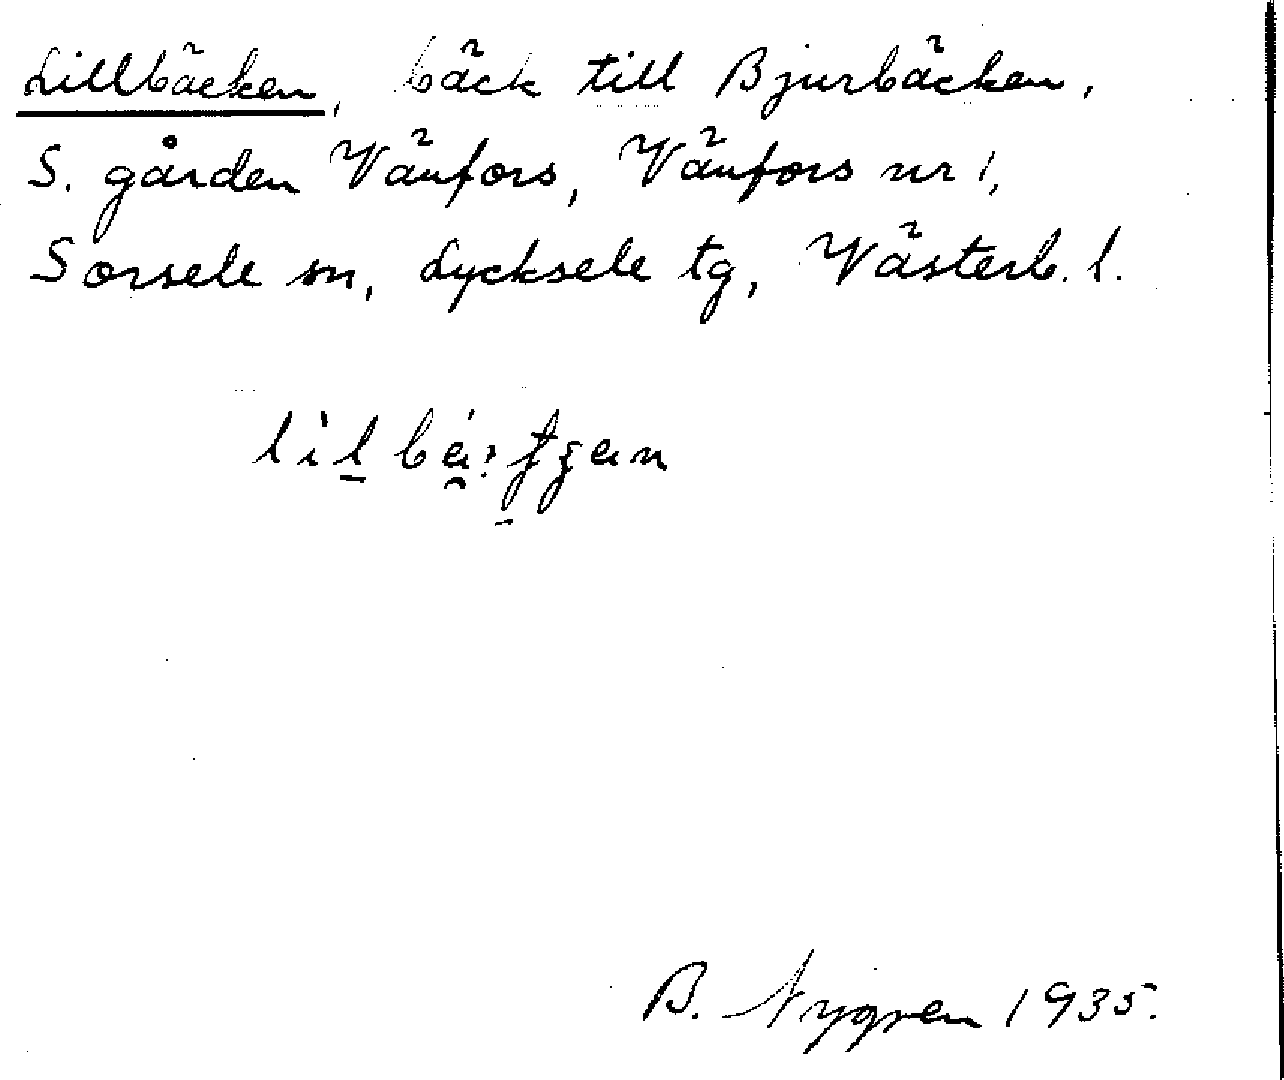 Lillbäcken, bäck till Bjurbäcken,
S. gården Vänfors, Vänfors nr 1,
Sorsele sn, Lycksele tg, Västerb. l.
B. Nygren 1935.